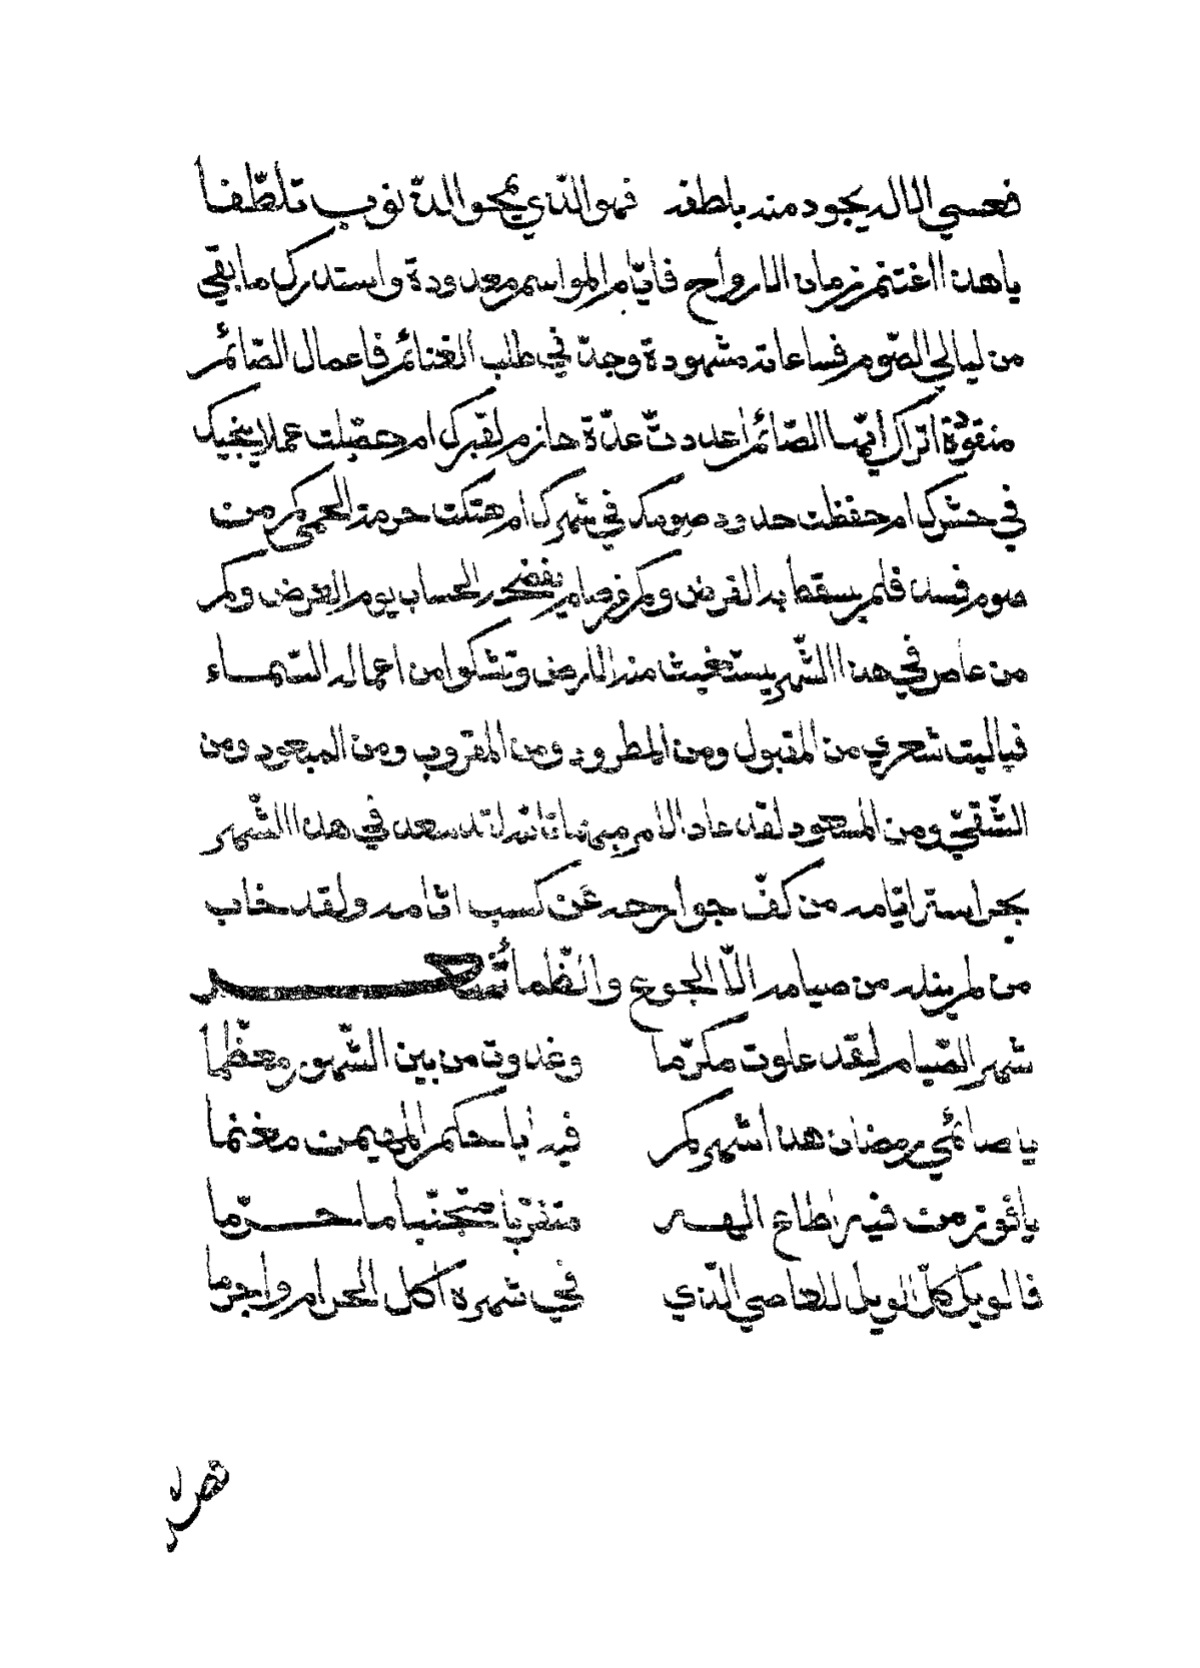 فعسى الاله يجود منه بلطفه فهو الذي يمحو الذنوب تلطّفا
يا هذا اغتنم زمان الارواح فايّام المواسم معدودة واستدرك ما بقي
من ليالي الصّوم فساعاته مشهودة وجدّ في طلب الغنائم فاعمال الصّائم
اتراك أيّها الصّائم اعددت عدّة حازم لقبرك ام حصّلت عملا ينجيك
في حشرك ام حفظت حدود صومك في شهرك ام هتكت حرمة الحمى كم من
صوم فسد فلم يسقط به الفرض وكم من صيام يفضحه الحساب يوم العرض وكم
من عاص في هذا الشّهر يستغيث منه الارض وتشكوا من اعماله السّماء
فياليت شعري من المقبول ومن المطرود ومن المقروب ومن المبعود ومن
الشّقيّ ومن المسعود لقد عاد الامر مبهما تالله لقد سعد في هذا الشّهر
بحراسة ايّامه من كفّ جوارحه عن كسب اثامه ولقد خاب
من لم ينله من صيامه الّا الجوع والظّمأ شعر
شهر الصّيام لقد علوت مكرّما وغدوت من بين الشّهور معظّما
يا صائمي رمضان هذا شهركم فيه اباحكم المهيمن مغنما
يا فوز من فيه اطاع الهه متقرّبا متجنّبا ما حرّما
فالويل كلّ الويل للعاصي الّذي في شهره اكل الحرام واجرما